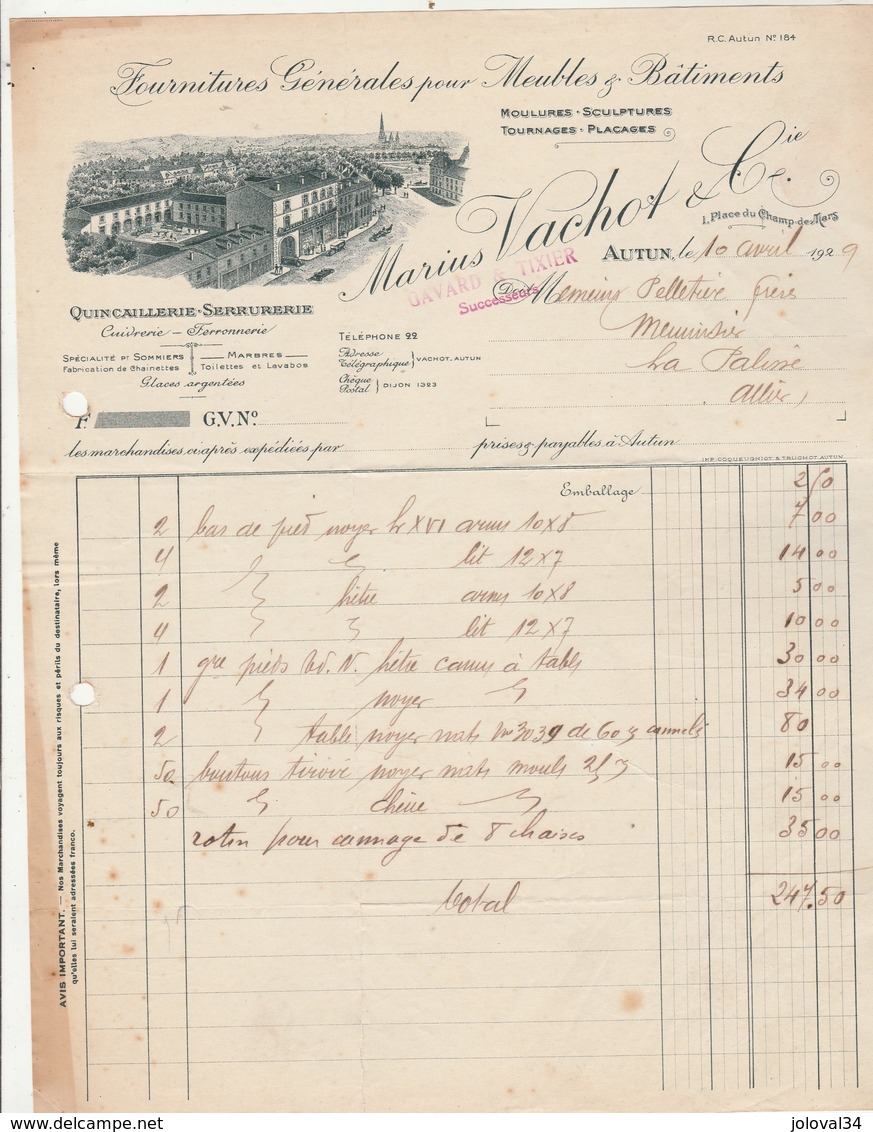 R.C. Autun Nº 184
Fournitures Générales pour Meubles & Bâtiments
Moulures - Sculptures
Tournages - Placages
Marius Vachot & Cie
1, Place du Champ-de-Mars
GAVARD & TIXIER
Successeurs
Autun, le 10 avril 1929
Doit M
Pelletier frères
Menuisier
La Palisse
Allier
Quincaillerie - Serrurerie
Cuivrerie - Ferronnerie
Spécialité pr Sommiers
Fabrication de Chainettes
Marbres
Toilettes et Lavabos
Glaces argentées
Téléphone 22
Adresse Télégraphique } Vachot. Autun
Chèque Postal } Dijon 1323
F. G.V. Nº
les marchandises ci après expédiées par prises & payables à Autun
Imp. Coqueugniot & Truchot. Autun.
Emballage 2 50
2 bas de pied noyer Ls XVI 10x8 7 00
4 " " lit 12x7 14 00
2 " hêtre 10x8 5 00
4 " " lit 12x7 10 00
1 pieds hêtre à table 30 00
1 " noyer " 34 00
2 " table noyer nats 3039 de 60 80
50 boutons tiroir noyer nats 15 00
50 " chêne " 15 00
rotin pour cannage de 8 chaises 35 00
Total 247.50
AVIS IMPORTANT. — Nos Marchandises voyagent toujours aux risques et périls du destinataire, lors même
qu'elles lui seraient adressées franco.
joloval34